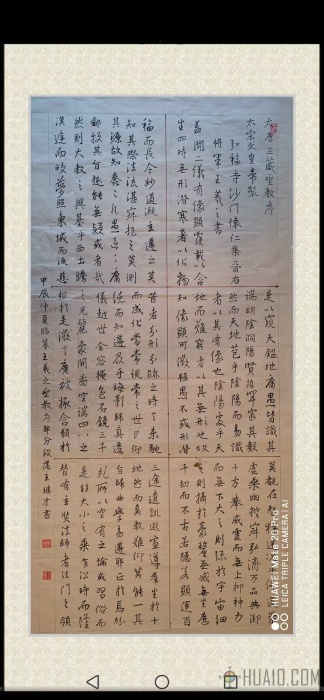 大唐三藏聖教序
太宗文皇帝製
弘福寺沙門懷仁集晉右
將軍王羲之書
蓋聞二儀有像顯覆載以含
生四時無形潛寒暑以化物
是以窺天鑑地庸愚皆識其
端明陰洞陽賢哲罕窮其數
然而天地苞乎陰陽而易識
者以其有像也陰陽處乎天
地而難窮者以其無形也故
知像顯可徵雖愚不惑形潛
莫覩在智猶迷況乎佛道崇
虛乘幽控寂弘濟萬品典御
十方舉威靈而無上抑神力
而無下大之則彌於宇宙細
之則攝於豪釐無滅無生歷
千劫而不古若隱若顯運百
福而長今妙道凝玄遵之莫
知其際法流湛寂挹之莫測
其源故知蠢蠢凡愚區區庸
鄙投其旨趣能無疑或者哉
然則大教之興基乎西土騰
漢庭而皎夢照東域而流慈
昔者分形分跡之時言未馳
而成化當常現常之世民仰
德而知遵及乎晦影歸真遷
儀越世金容掩色不鏡三千
之光麗象開圖空端四八之
相於是微言廣被拯含類於
三途遺訓遐宣導群生於十
地然而真教難仰莫能一其
旨歸曲學易遵邪正於焉紛
糺所以空有之論或習俗而
是非大小之乘乍沿時而隆
替有玄奘法師者法門之領
甲辰仲夏臨摹王羲之聖教序部分段落王继才書
HUAWEI Mate 20 Pro
LEICA TRIPLE CAMERA | AI
HUA10.COM